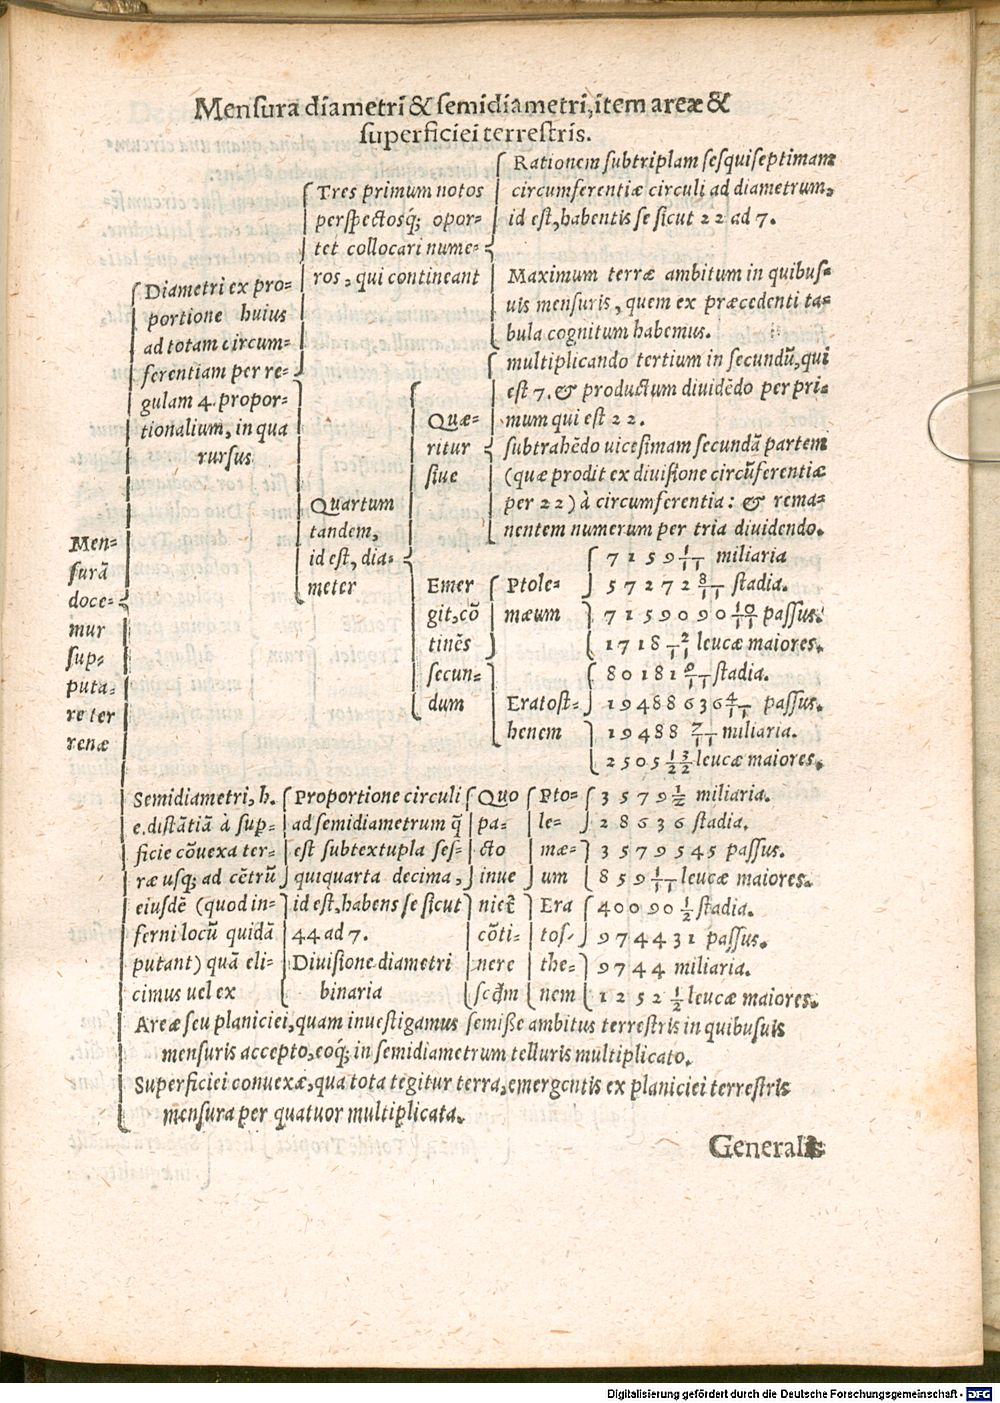 Mensura diametri & semidiametri, item areæ &
superficiei terrestris.
Men-
surā
doce-
mur
sup-
puta-
re ter
renæ
Diametri ex pro-
portione huius
ad totam circum-
ferentiam per re-
gulam 4. propor-
tionalium, in qua
rursus
Tres primum notos
perspectosq; opor-
tet collocari nume-
ros, qui contineant
Rationem subtriplam sesquiseptimam
circumferentiæ circuli ad diametrum,
id est, habentis se sicut 22 ad 7.
Maximum terræ ambitum in quibus-
uis mensuris, quem ex præcedenti ta-
bula cognitum habemus.
Quartum
tandem,
id est, dia-
meter
Quæ-
ritur
siue
multiplicando tertium in secundū, qui
est 7. & productum diuidēdo per pri-
mum qui est 22.
subtrahēdo uicesimam secundā partem
(quæ prodit ex diuisione circūferentiæ
per 22) à circumferentia: & rema-
nentem numerum per tria diuidendo.
Emer
git, cō
tinēs
secun-
dum
Ptole-
mæum
7159 1/11 miliaria
57272 8/11 stadia.
7159090 10/11 passus.
1718 2/11 leucæ maiores.
Eratost-
henem
80181 9/11 stadia.
19488636 4/11 passus.
19488 7/11 miliaria.
2505 13/22 leucæ maiores.
Semidiametri, h.
e. distātiā à sup-
ficie cōuexa ter-
ræ usq; ad cētrū
eiusdē (quod in-
ferni locū quidā
putant) quā eli-
cimus uel ex
Proportione circuli
ad semidiametrum q̄
est subtextupla ses-
quiquarta decima,
id est, habens se sicut
44 ad 7.
Diuisione diametri
binaria
Quo
pa-
cto
inue
nieť
cōti-
nere
scđm
Pto-
le-
mæ-
um
3579 1/2 miliaria.
28636 stadia.
3579545 passus.
859 1/11 leucæ maiores.
Era
tos-
the-
nem
40090 1/2 stadia.
974431 passus.
9744 miliaria.
1252 1/2 leucæ maiores.
Areæ seu planiciei, quam inuestigamus semisse ambitus terrestris in quibusuis
mensuris accepto, eoq; in semidiametrum telluris multiplicato.
Superficiei conuexæ, qua tota tegitur terra, emergentis ex planiciei terrestris
mensura per quatuor multiplicata.
Generalis
Digitalisierung gefördert durch die Deutsche Forschungsgemeinschaft - DFG